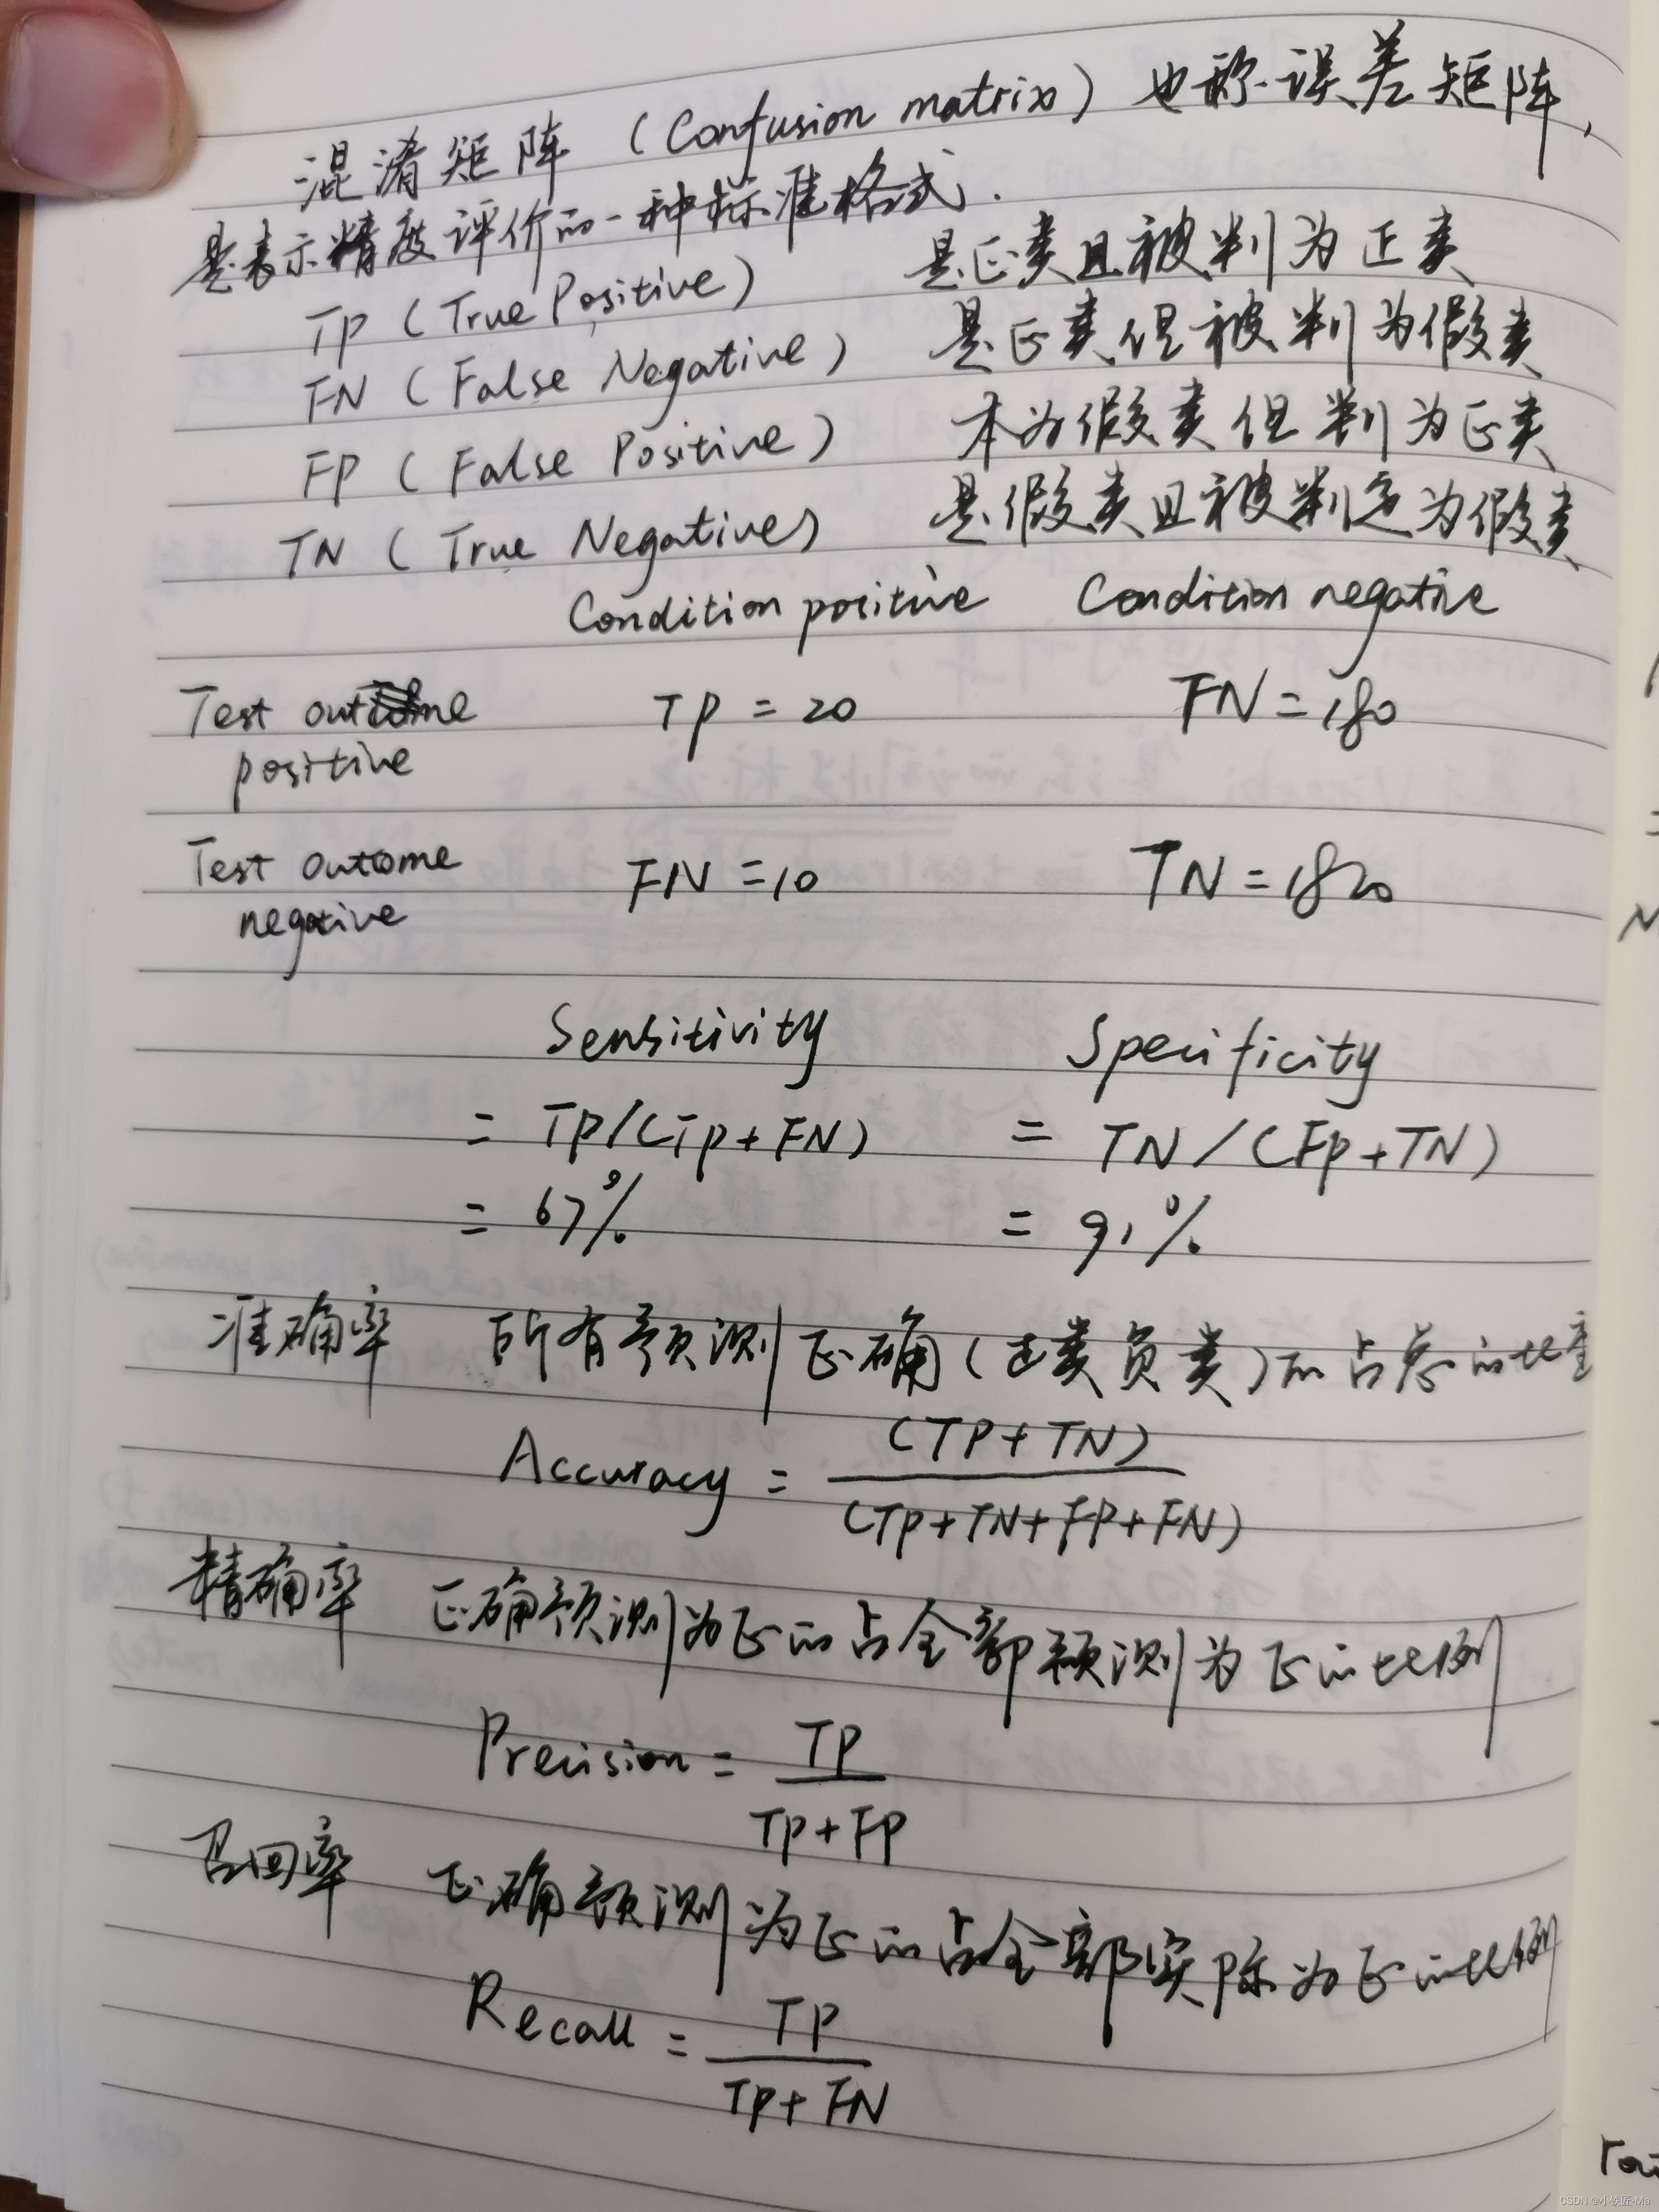 混淆矩阵 (Confusion matrix) 也称误差矩阵,
是表示精度评价的一种标准格式.
TP (True Positive) 是正类且被判为正类
FN (False Negative) 是正类但被判为假类
FP (False Positive) 本为假类但判为正类
TN (True Negative) 是假类且被判定为假类
Condition positive Condition negative
Test outcome TP = 20 FN = 180
positive
Test outcome FN = 10 TN = 1820
negative
Sensitivity Specificity
= TP/(TP+FN) = TN/(FP+TN)
= 67% = 91%
准确率 所有预测正确(正类负类)的占总的比重
Accuracy = (TP+TN)
(TP+TN+FP+FN)
精确率 正确预测为正的占全部预测为正的比例
Precision = TP
TP+FP
召回率 正确预测为正的占全部实际为正的比例
Recall = TP
TP+FN
CSDN @小伙匠·Ma